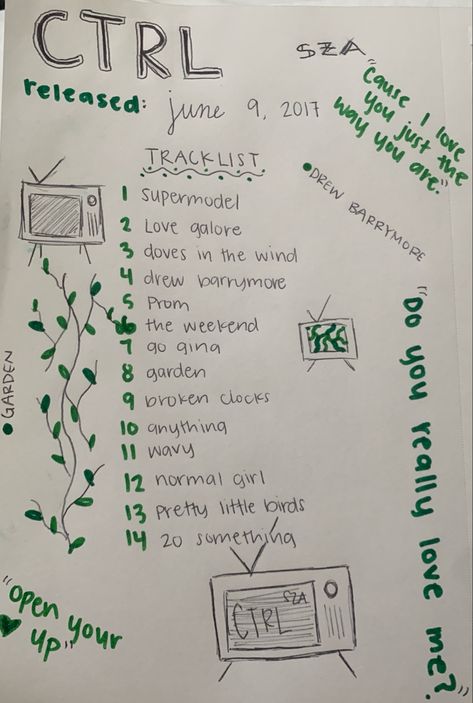 CTRL
SZA
released: june 9, 2017
"Cause I love
you just the
way you are."
•DREW BARRYMORE
TRACKLIST
1 supermodel
2 Love galore
3 doves in the wind
4 drew barrymore
5 Prom
6 the weekend
7 go gina
8 garden
9 broken clocks
10 anything
11 wavy
12 normal girl
13 pretty little birds
14 20 something
•GARDEN
"Do you really love me?"
"open your
up"
SZA
CTRL